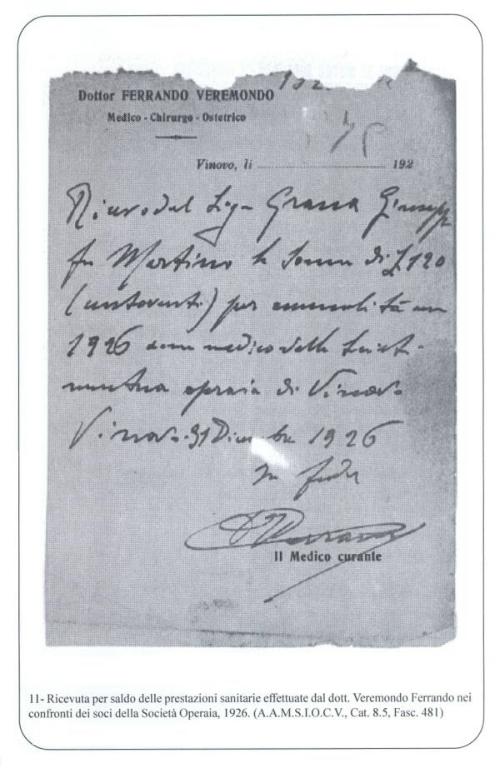 Dottor FERRANDO VEREMONDO
Medico - Chirurgo - Ostetrico
Vinovo, li ........................ 192
Ricevo dal Sig. Grassa Giuseppe
fu Martino la somma di £ 120
(centoventi) per annualità
1926 come medico della Società
mutua operaia di Vinovo
Vinovo 31 Dicembre 1926
In fede
Il Medico curante
11- Ricevuta per saldo delle prestazioni sanitarie effettuate dal dott. Veremondo Ferrando nei
confronti dei soci della Società Operaia, 1926. (A.A.M.S.I.O.C.V., Cat. 8.5, Fasc. 481)